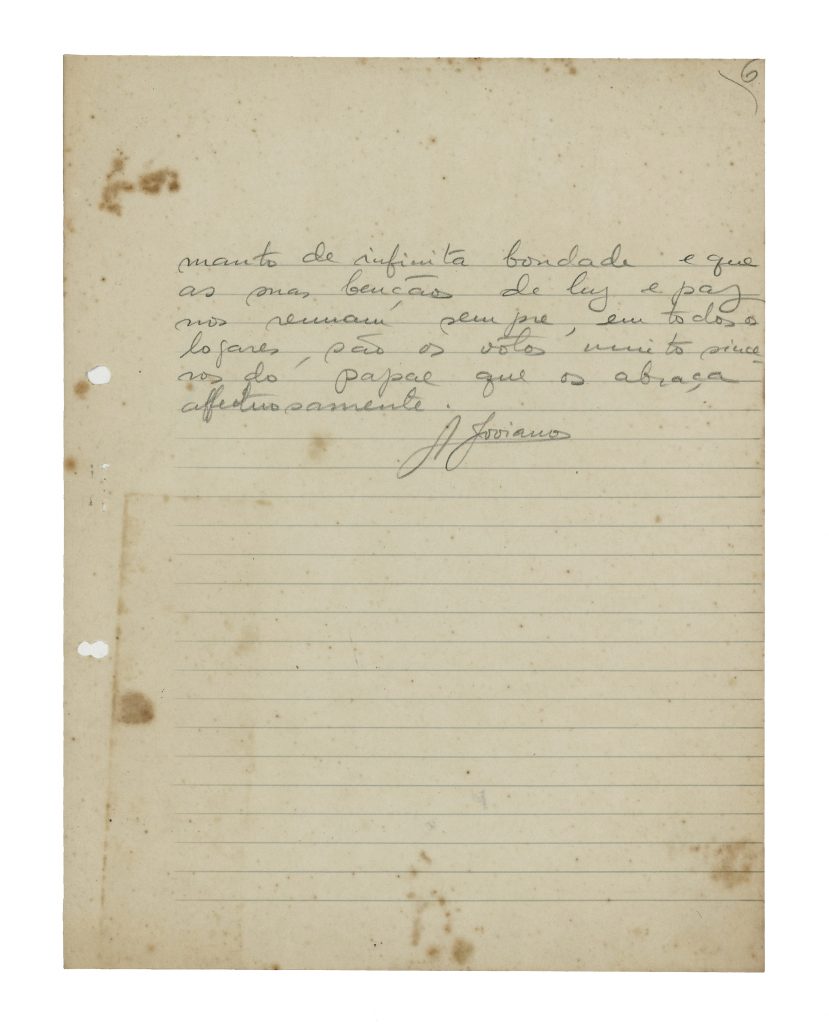 6
manto de infinita bondade e que
as suas bençãos de luz e paz
nos reunam, sempre, em todos o
logares, são os vótos muito since-
ros do papae que os abraça
affectuosamente.
A Joviano